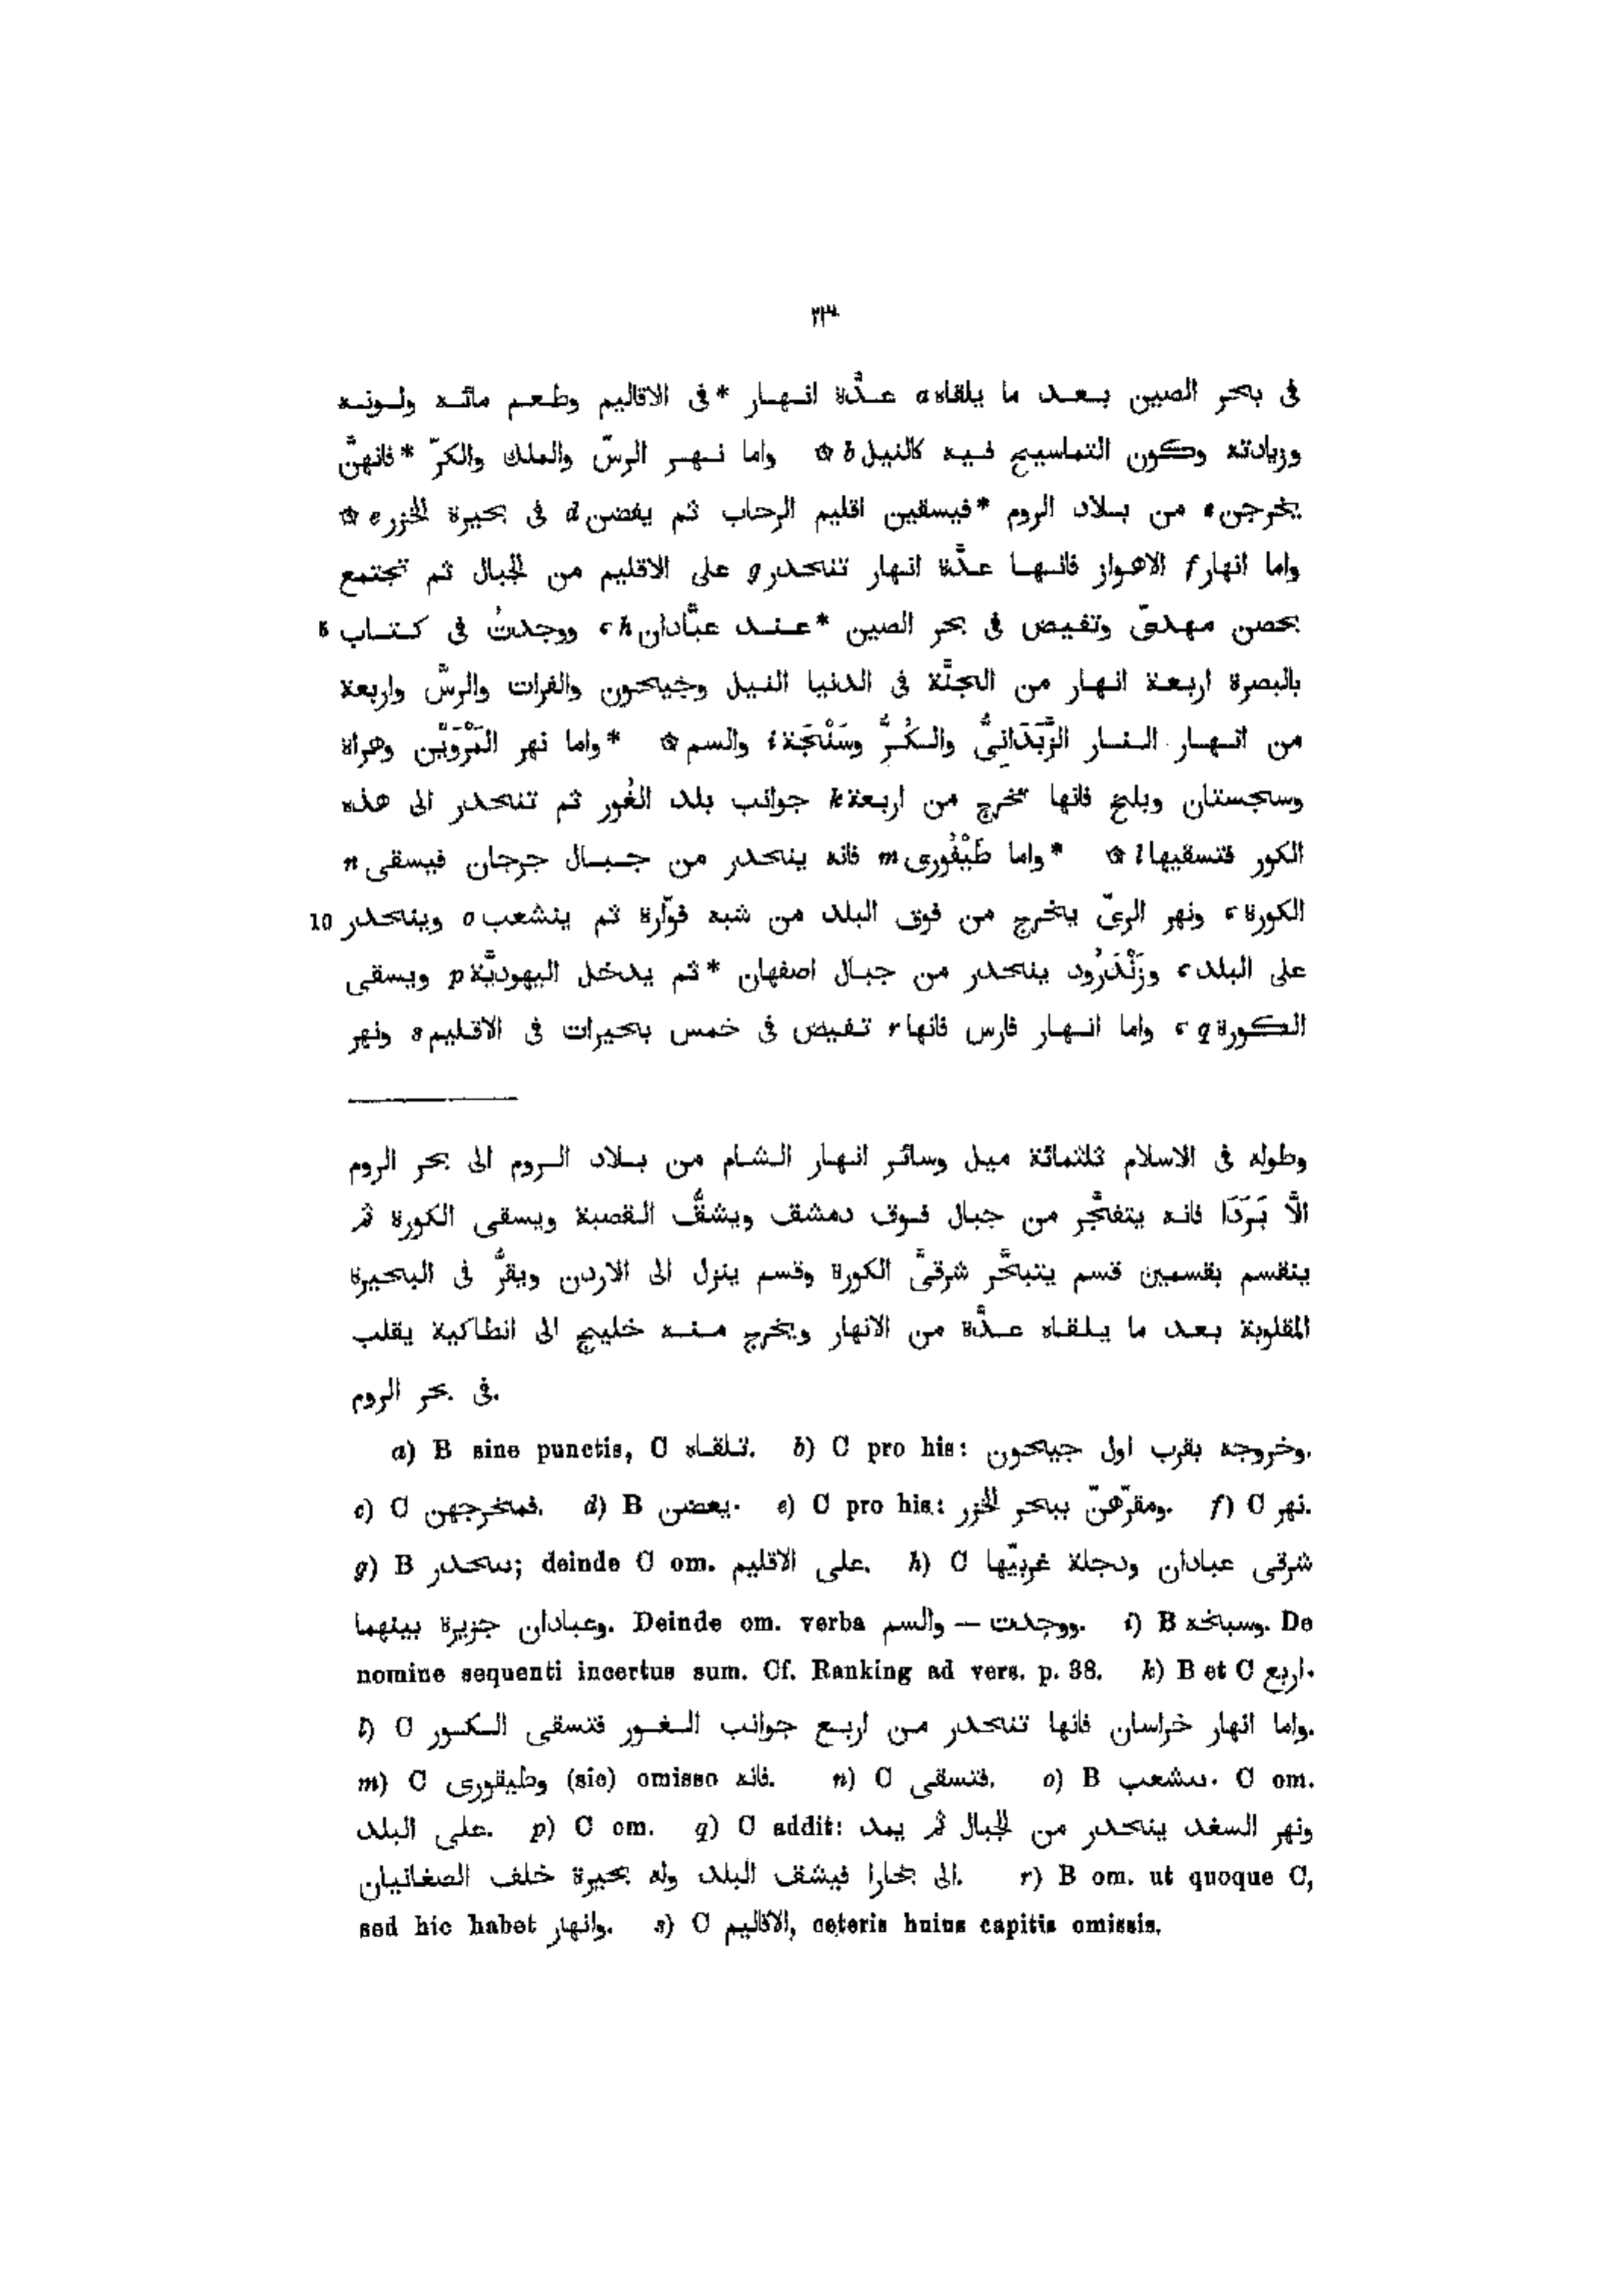 ٢٣
فى بحر الصين بعد ما يلقاه a عدّة انهار *فى الاقاليم وطعم مائه ولونه
وزيادته وكون التماسيح فيه كالنيل b ۞ واما نهر الرسّ والملك والكرّ *فانهنّ
يخرجن c من بلاد الروم *فيسقين اقليم الرحاب ثم يفضن d فى بحيرة الخزر e ۞
واما انهار f الاهواز فانها عدّة انهار تنحدر g على الاقليم من الجبال ثم تجتمع
بحصن مهدىّ وتفيض فى بحر الصين *عند عبّادان h، ووجدتُ فى كتاب 5
بالبصرة اربعة انهار من الجنّة فى الدنيا النيل وجيحون والفرات والرسّ واربعة
من انهار النار الزَّبَدَانِىُّ والكُرُّ وسَنْجَة i والسم ۞ *واما نهر المَرْوَيْن وهراة
وسجستان وبلخ فانها تخرج من اربعة k جوانب بلد الغُور ثم تنحدر الى هذه
الكور فتسقيها l ۞ *واما طَيْفُورى m فانه ينحدر من جبال جرجان فيسقى n
الكورة، ونهر الرىّ يخرج من فوق البلد من شبه فوّارة ثم ينشعب o وينحدر 10
على البلد، وزَنْدَرُود ينحدر من جبال اصفهان *ثم يدخل اليهوديّة p ويسقى
الكورة q، واما انهار فارس فانها r تفيض فى خمس بحيرات فى الاقليم s ونهر
وطوله فى الاسلام ثلثمائة ميل وسائر انهار الشام من بلاد الروم الى بحر الروم
الَّا بَرَدَا فانه يتفجّر من جبال فوق دمشق ويشقُّ القصبة ويسقى الكورة ثم
ينقسم بقسمين قسم يتبحَّر شرقىَّ الكورة وقسم ينزل الى الاردن ويقرُّ فى البحيرة
المقلوبة بعد ما يلقاه عدّة من الانهار ويخرج منه خليج الى انطاكية يقلب
فى بحر الروم.
a) B sine punctis, C تلقاه. b) C pro his: وخروجه بقرب اول جيحون.
c) C فمخرجهن. d) B يعضن. e) C pro his: ومقرّهنّ ببحر الخزر. f) C نهر.
g) B سحدر; deinde C om. على الاقليم. h) C شرقى عبادان ودجلة غربيّها
وعبادان جزيرة بينهما. Deinde om. verba ووجدت — والسم. i) B وسبخه. De
nomine sequenti incertus sum. Cf. Ranking ad vers. p. 38. k) B et C اربع.
l) C واما انهار خراسان فانها تنحدر من اربع جوانب الغور فتسقى الكور.
m) C وطيقورى (sic) omisso فانه. n) C فتسقى. o) B سشعب. C om.
على البلد. p) C om. q) C addit: ونهر السغد ينحدر من الجبال ثم يمد
الى بخارا فيشق البلد وله بحيرة خلف الصغانيان. r) B om. ut quoque C,
sed hic habet وانهار. s) C الاقاليم, ceteris huius capitis omissis.